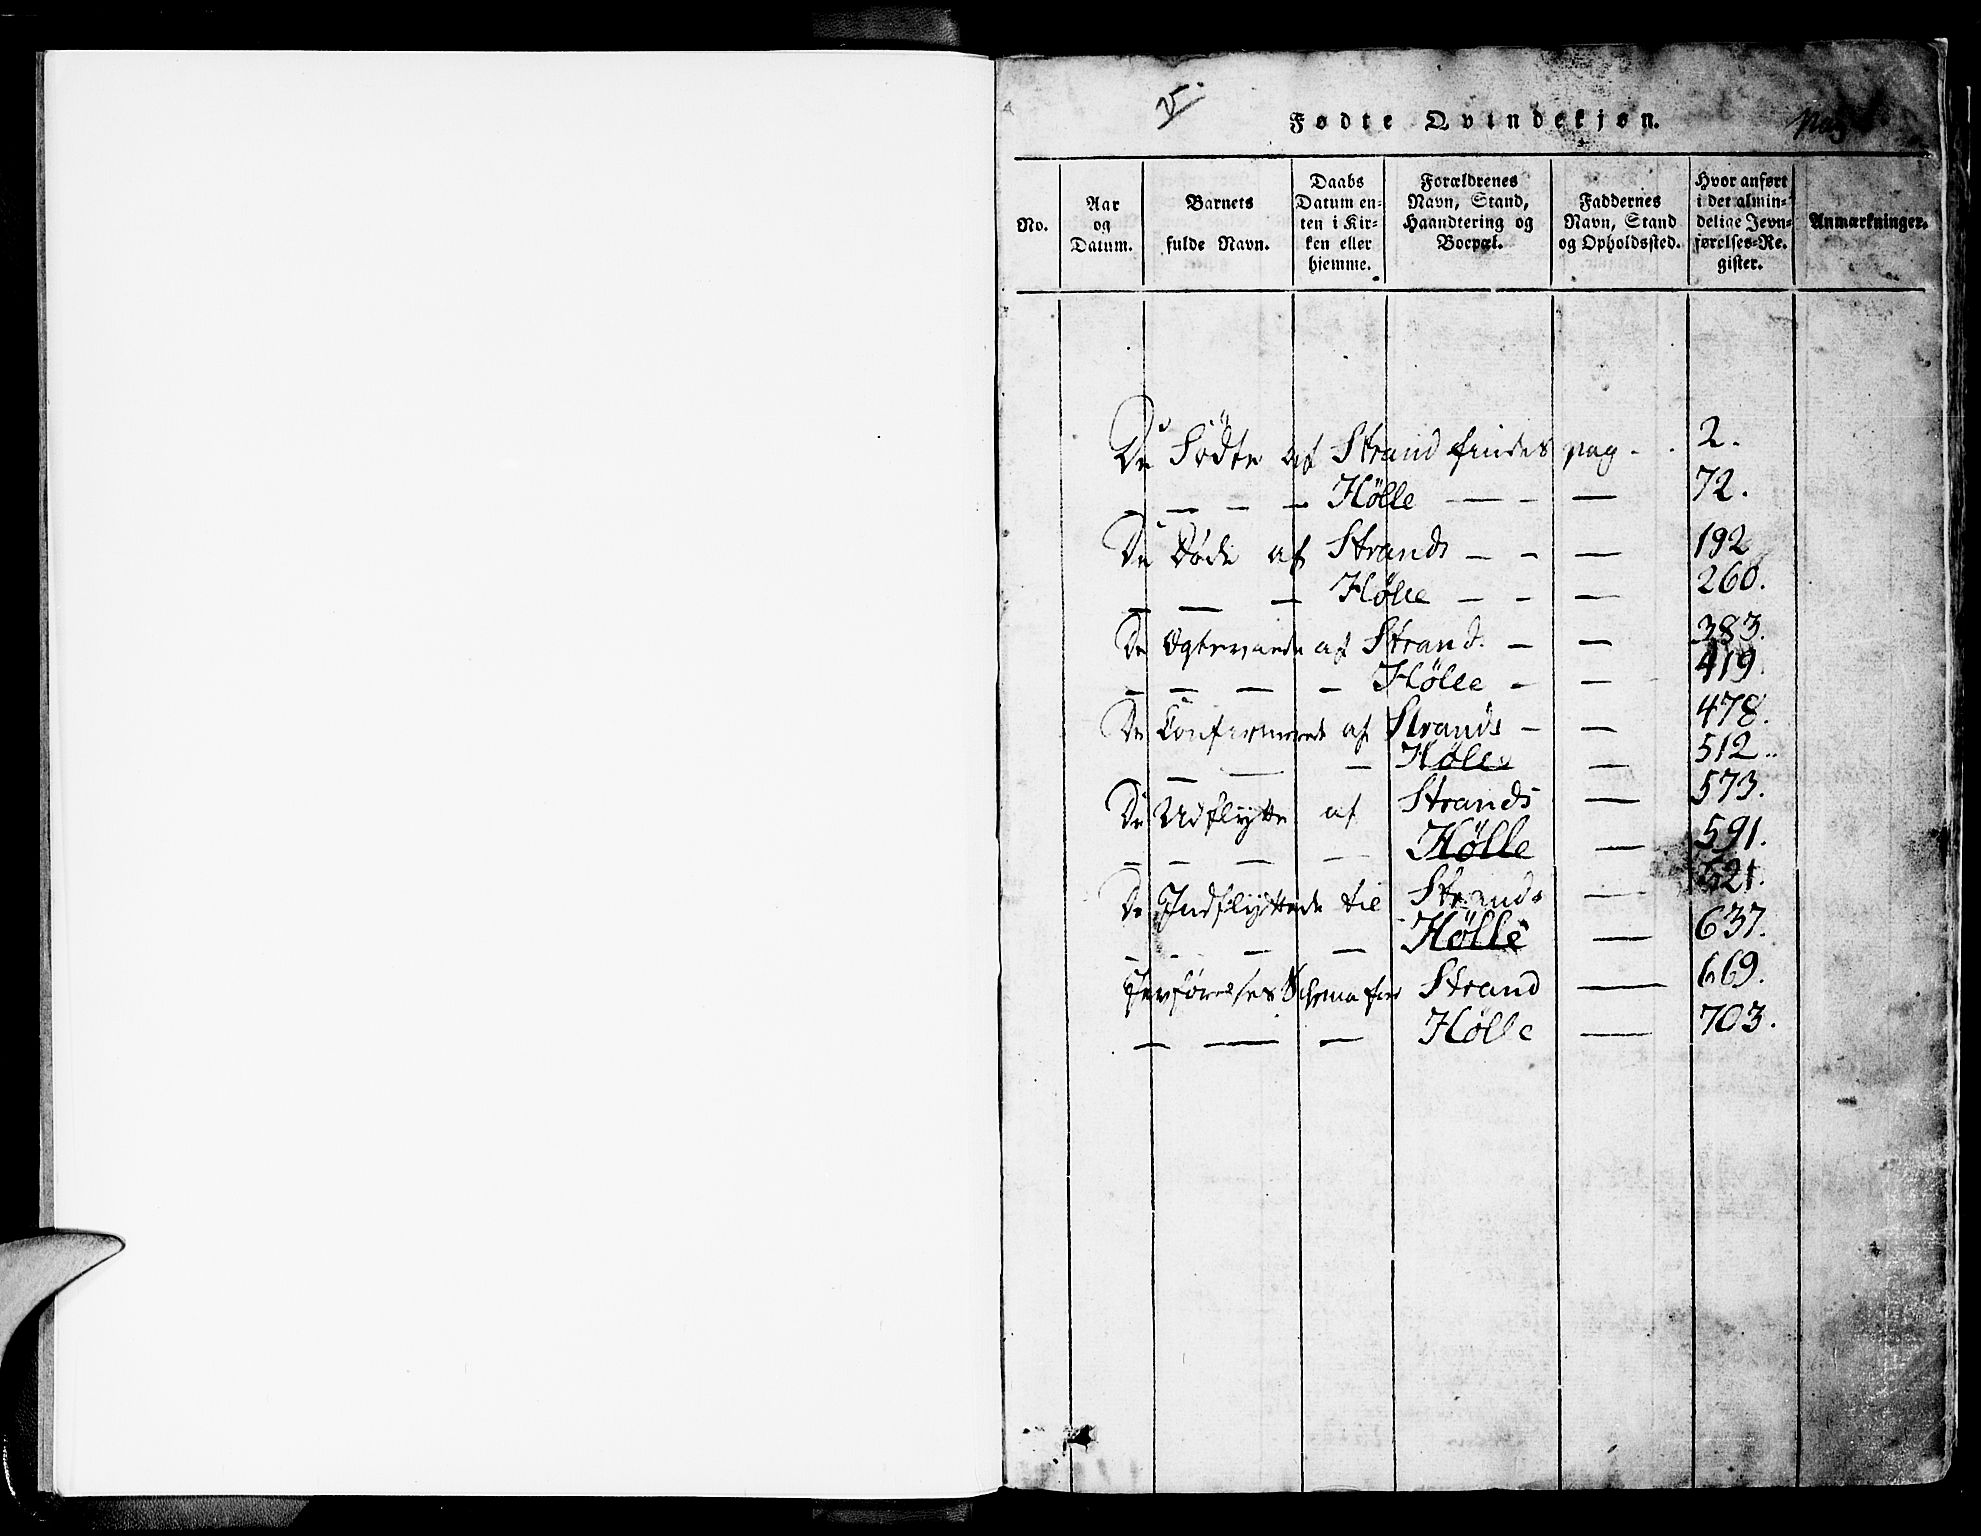 Fødte Qvindekjøn. pag
No.
Aar
og
Datum.
Barnets
fulde Navn.
Daabs
Datum en-
ten i Kir-
ken eller
hjemme.
Forældrenes
Navn, Stand,
Haandtering og
Boepæl.
Faddernes
Navn, Stand
og Opholdssted.
Hvor anført
i det almin-
delige Jevn-
førelses-Re-
gister.
Anmærkninger.
De Födte af Strand findes pag - . 2.
— — — — Hölle — - — 72.
De Døde af Strands — - — 192
— — — Hølle — - — 260.
De Ægteviede af Strand. — — 383.
— — — — Hølle - — 419.
De Confirmerede af Strands — — 478.
— — — Hølle — 512..
De Udflytte af Strands — 573.
— — — — Hølle — 591.
De Indflyttede til Strands — 621.
— - — — Hølle — 637.
Jevförelses Schema for Strand — 669.
— — — Hølle — 703.